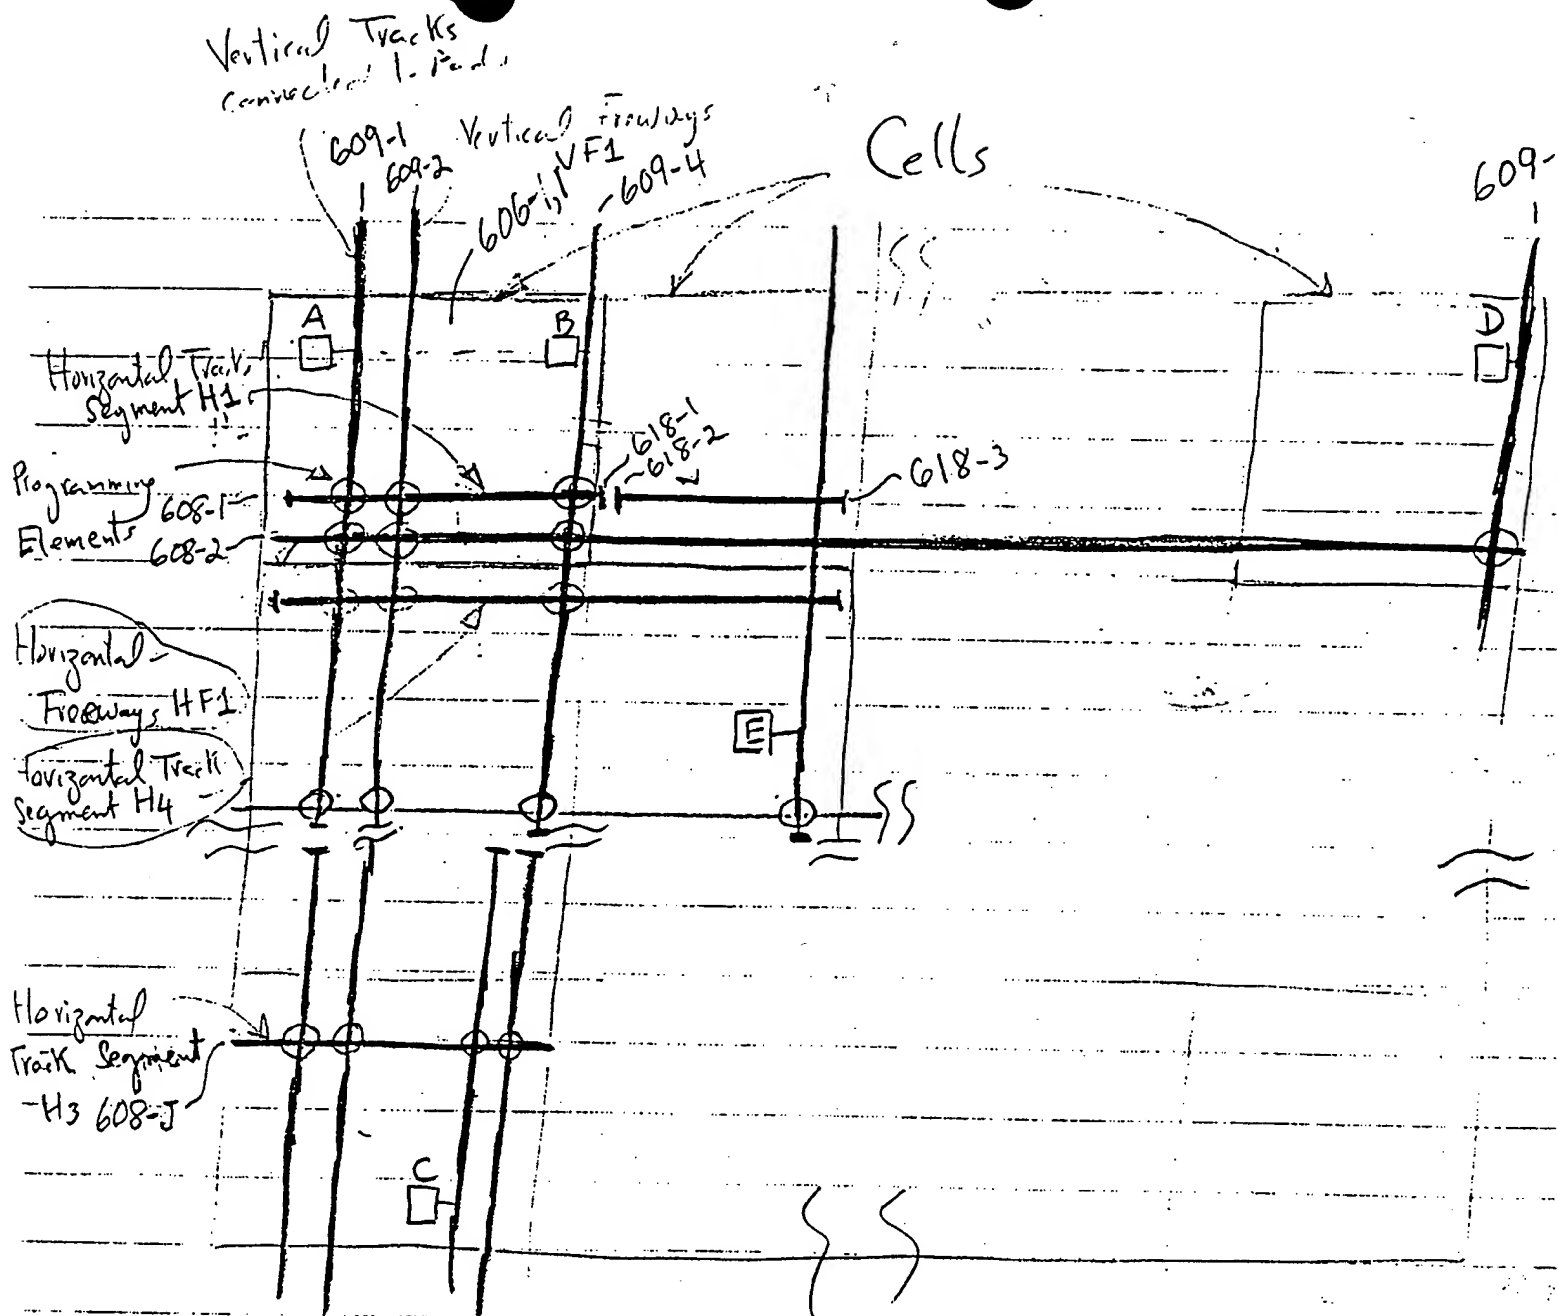 Vertical Tracks
connected to Pads
609-1
609-2
Vertical Freeways
606-1, VF1
609-4
Cells
609-
A
B
D
Horizontal Track
Segment H1
618-1
618-2
618-3
Programming
Elements
608-1
608-2
Horizontal
Freeways HF1
Horizontal Track
Segment H4
E
Horizontal
Track Segment
-H3 608-J
C